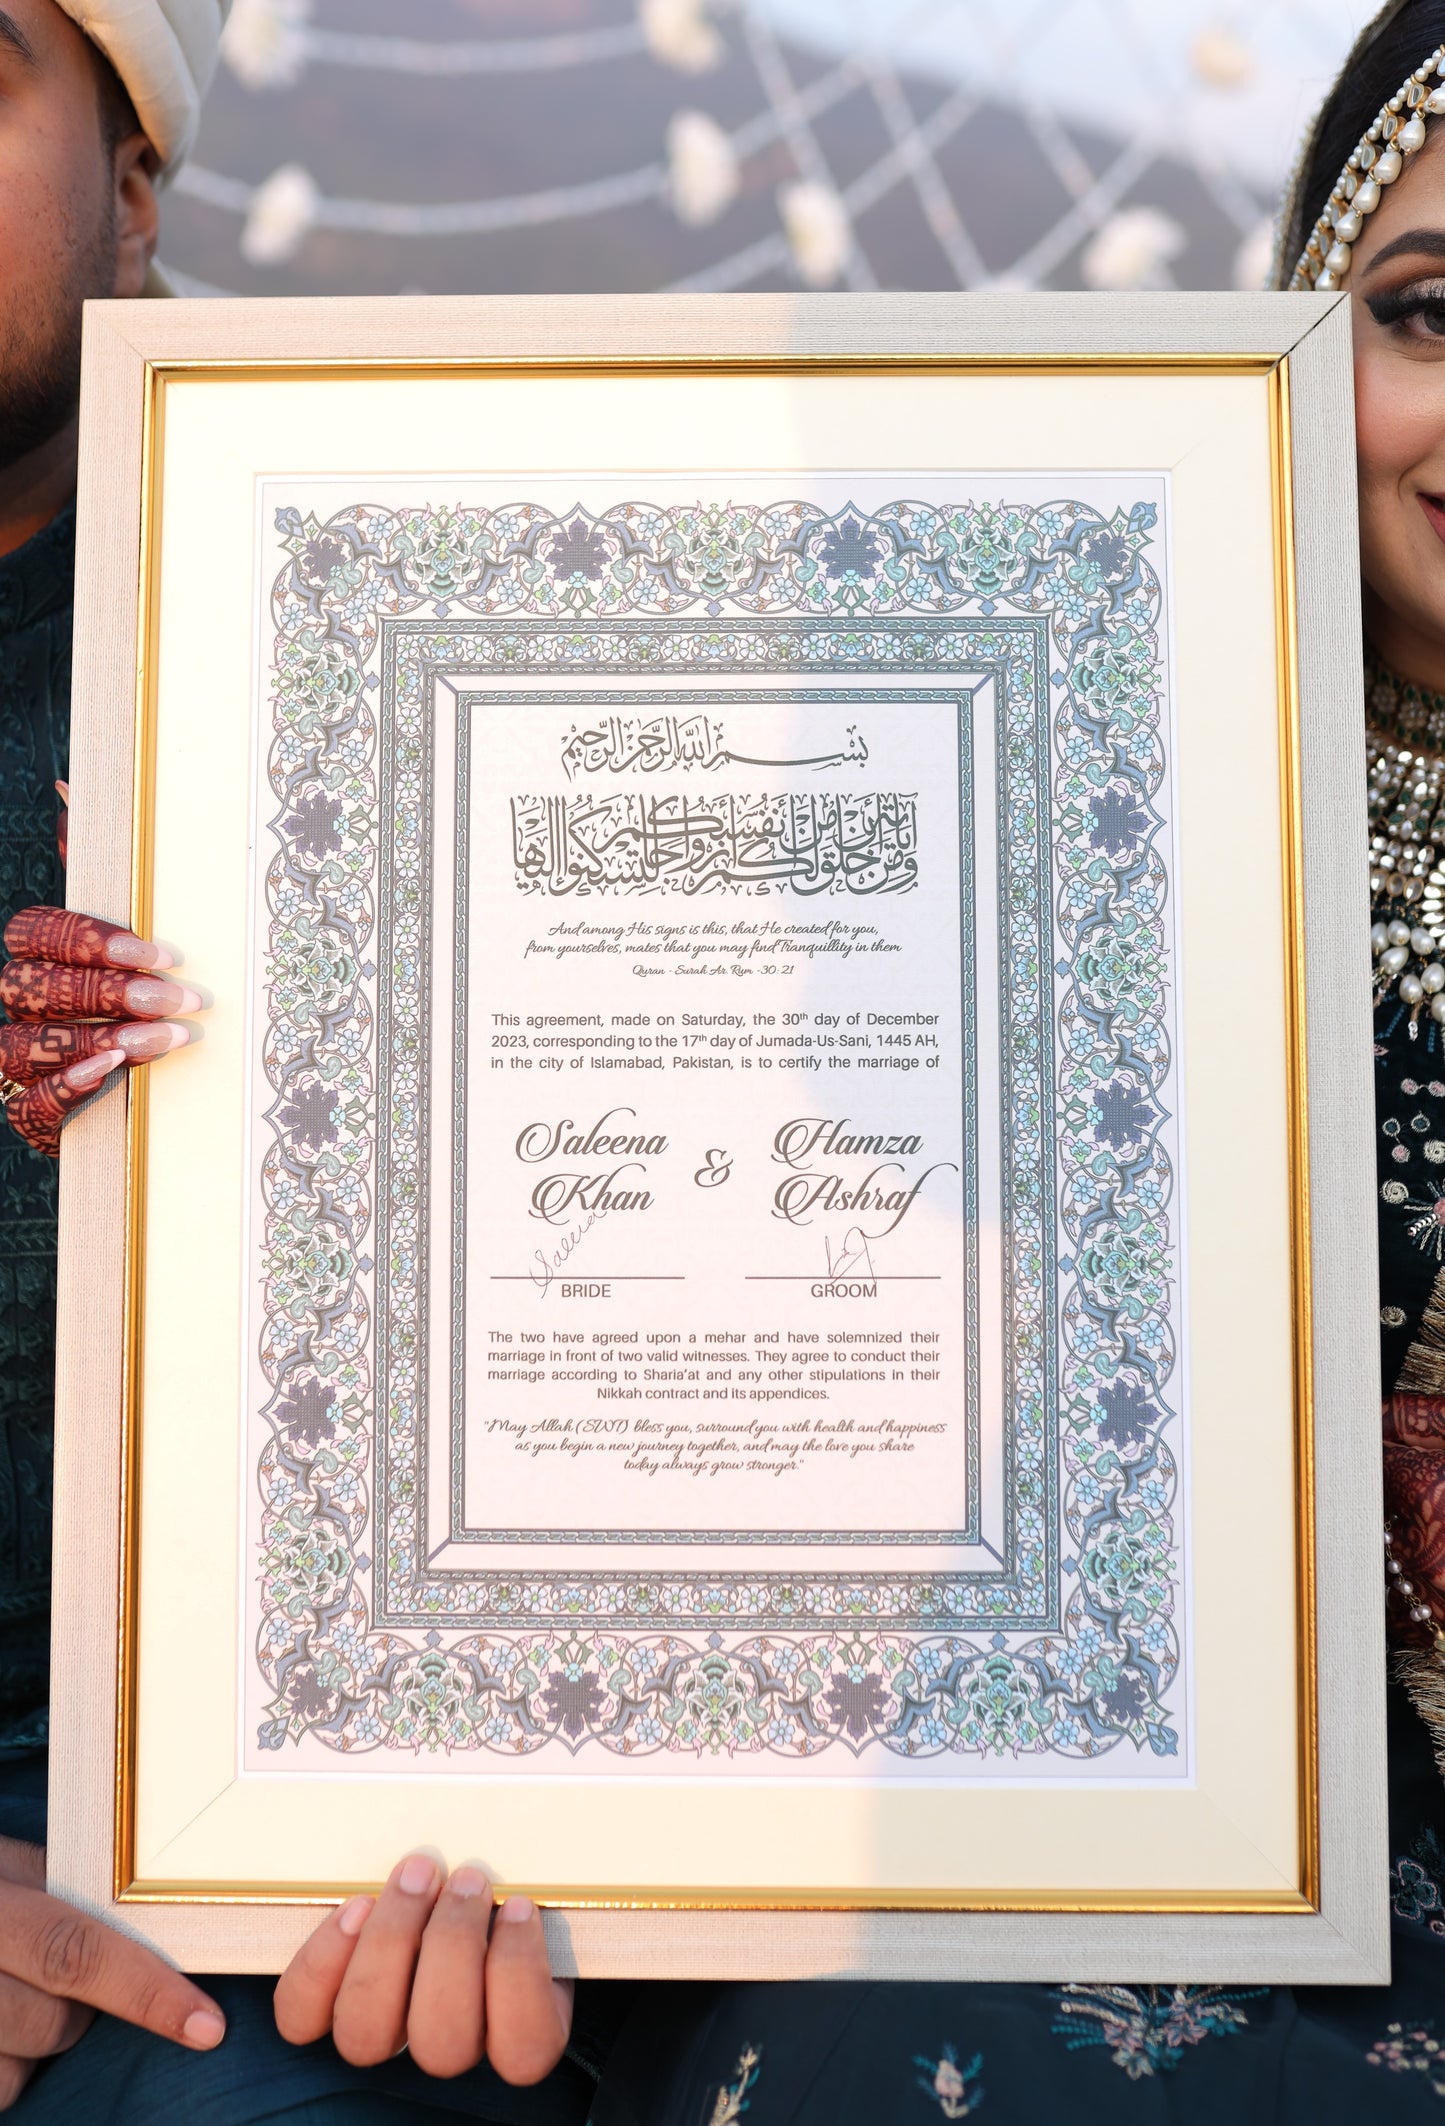 بسم الله الرحمن الرحيم
ومن آياته أن خلق لكم من أنفسكم أزواجا لتسكنوا إليها
And among His signs is this, that He created for you,
from yourselves, mates that you may find Tranquillity in them
Quran - Surah Ar Rum - 30:21
This agreement, made on Saturday, the 30th day of December
2023, corresponding to the 17th day of Jumada-Us-Sani, 1445 AH,
in the city of Islamabad, Pakistan, is to certify the marriage of
Saleena
Khan
&
Hamza
Ashraf
BRIDE
GROOM
The two have agreed upon a mehar and have solemnized their
marriage in front of two valid witnesses. They agree to conduct their
marriage according to Sharia’at and any other stipulations in their
Nikkah contract and its appendices.
"May Allah (SWT) bless you, surround you with health and happiness
as you begin a new journey together, and may the love you share
today always grow stronger."